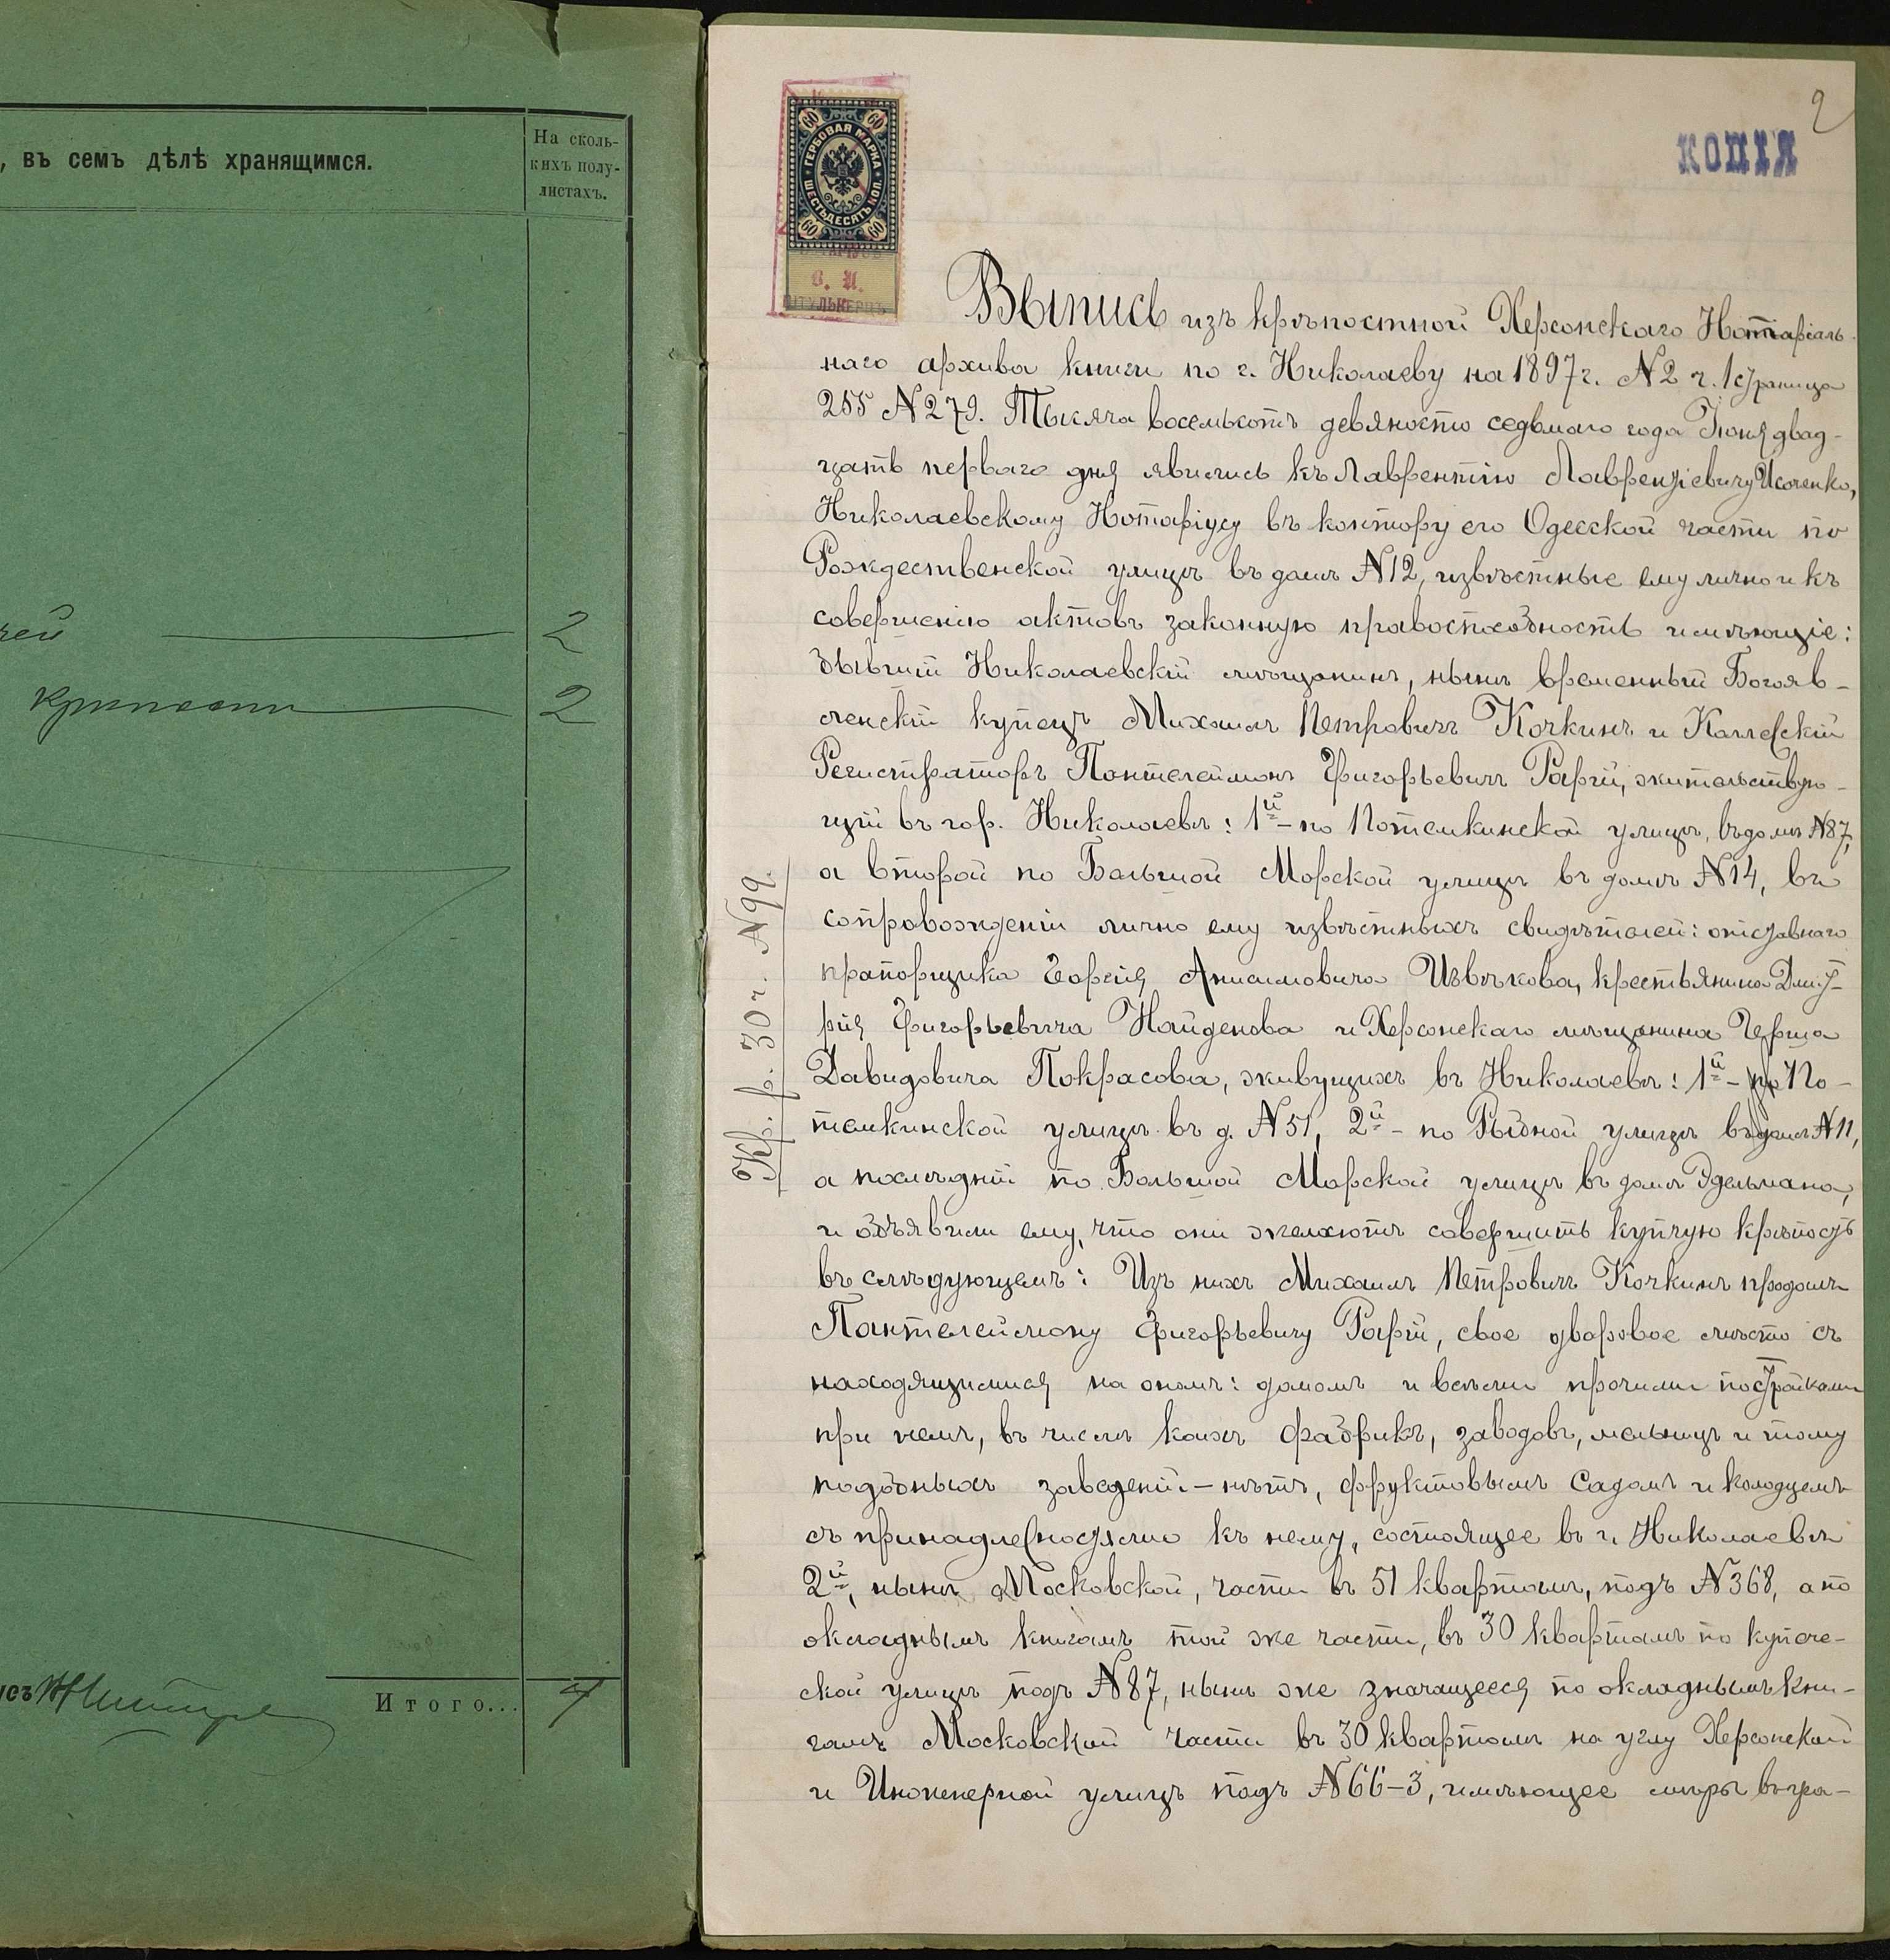 , въ семъ дѣлѣ хранящимся.
На сколь-
кихъ полу-
листахъ.
2
крѣпости 2
Итого... 4
2
КОПІЯ
60 60
ГЕРБОВАЯ МАРКА
ШЕСТЬДЕСЯТЪ КОП.
60 60
В. И.
Кр. р. 30 ч. N99.
Выпись изъ крѣпостной Херсонскаго Нотаріаль-
наго архива книги по г. Николаеву на 1897 г. N2 ч. 1 страница
255 N279. Тысяча восемьсотъ девяносто седьмого года Іюня двад-
цать перваго дня явились къ Лаврентію Лаврентіевичу Исаченко,
Николаевскому Нотаріусу въ контору его Одесской части по
Рождественской улицѣ въ домѣ N12, извѣстные ему лично и къ
совершенію актовъ законную правоспособность имѣющіе:
бывшій Николаевскій мѣщанинъ, нынѣ временный Богояв-
ленскій купецъ Михаилъ Петровичъ Кочкинъ и Коллежскій
Регистраторъ Пантелеймонъ Григорьевичъ Рафій, жительствую-
щій въ гор. Николаевѣ: 1й – по Потемкинской улицѣ, въ домѣ N87,
а второй по Большой Морской улицѣ въ домѣ N14, въ
сопровожденіи лично ему извѣстныхъ свидѣтелей: отставнаго
прапорщика Георгія Анисимовича Извѣкова, крестьянина Дмит-
рія Григорьевича Найденова и Херсонскаго мѣщанина Герша
Давидовича Покрасова, живущихъ въ Николаевѣ: 1й – по По-
темкинской улицѣ въ д. N51, 2й – по Рыбной улицѣ въ домѣ N11,
а послѣдній по Большой Морской улицѣ въ домѣ Эдельмана,
и объявили ему, что они желаютъ совершить купчую крѣпость
въ слѣдующемъ: Изъ нихъ Михаилъ Петровичъ Кочкинъ продалъ
Пантелеймону Григорьевичу Рафій, свое дворовое мѣсто съ
находящимися на ономъ: домомъ и всѣми прочими постройками
при немъ, въ числѣ коихъ фабрикъ, заводовъ, мельницъ и тому
подобныхъ заведеній – нѣтъ, фруктовымъ садомъ и колодцемъ
съ принадлежностями къ нему, состоящее въ г. Николаевѣ
2й, нынѣ Московской, части въ 51 кварталѣ, подъ N368, а по
окладнымъ книгамъ той же части, въ 30 кварталѣ по купече-
ской улицѣ подъ N87, нынѣ же значащееся по окладнымъ кни-
гамъ Московской части въ 30 кварталѣ на углу Херсонской
и Инженерной улицъ подъ N66–3, имѣющее мѣры въ гра-